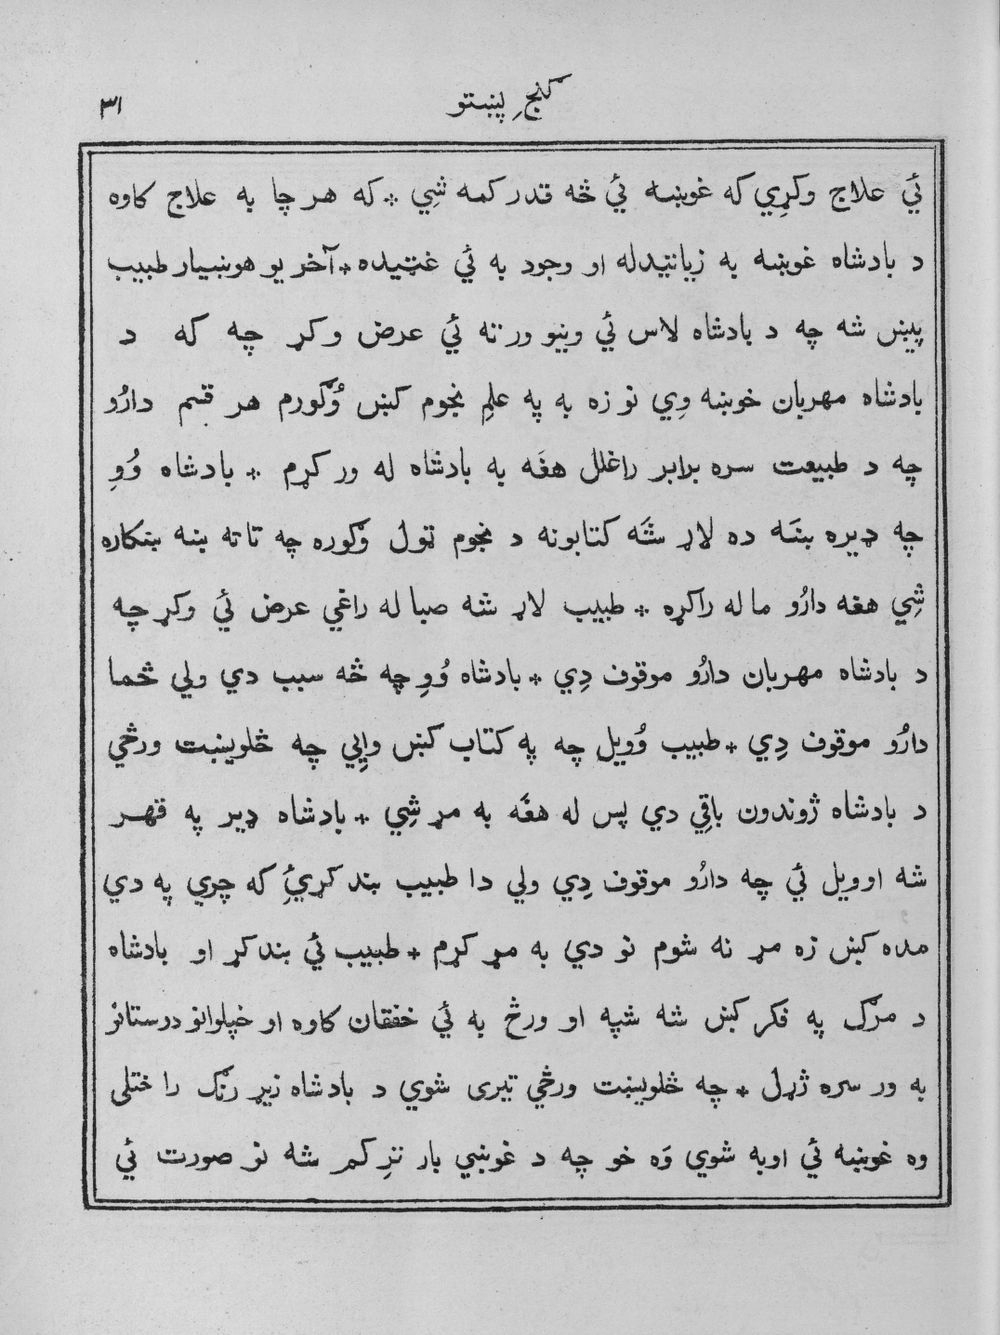 گنجِ پښتو ٣١
ئي علاج وکړِي که غوښه ئي څه قدر کمه شِي * که هر چا به علاج کاوه
د بادشاه غوښه به زیاتیدله او وجود به ئي غټیده * آخر یو هوښیار طبیب
پیښ شه چه د بادشاه لاس ئي ونیو ورته ئي عرض وکړ چه که د
بادشاه مهربان خوښه وِي نو زه به په علمِ نجوم کښ وُګورم هر قسم دارُو
چه د طبیعت سره برابر راغلل هغَه به بادشاه له ورکړم * بادشاه وُوِ
چه ډیره ښَه ده لاړ شَه کتابونه د نجوم ټول وګوره چه تا ته ښه ښکاره
شِي هغه دارُو ما له راکړه * طبیب لاړ شه صبا له راغي عرض ئي وکړ چه
د بادشاه مهربان دارُو موقوف دِي * بادشاه وُوِ چه څه سبب دي ولي څما
دارُو موقوف دِي * طبیب وُویل چه په کتاب کښ وایِي چه څلویښت ورځي
د بادشاه ژوندون باقِي دي پس له هغَه به مړ شِي * بادشاه ډیر په قهر
شه او ویل ئي چه دارُو موقوف دِي ولي دا طبیب بند کړئِ که چري په دي
مده کښ زه مړ نه شوم نو دي به مړ کړم * طبیب ئي بند کړ او بادشاه
د مرګ په فکر کښ شه شپه او ورځ به ئي خفقان کاوه او خپلوانو درستانو
به ور سره ژړل * چه څلویښت ورځي تیری شوي د بادشاه زیړ رنګ را ختلی
وه غوښه ئي اوبه شوي وَه خو چه د غوښي بار ترِ کم شه نو صورت ئي